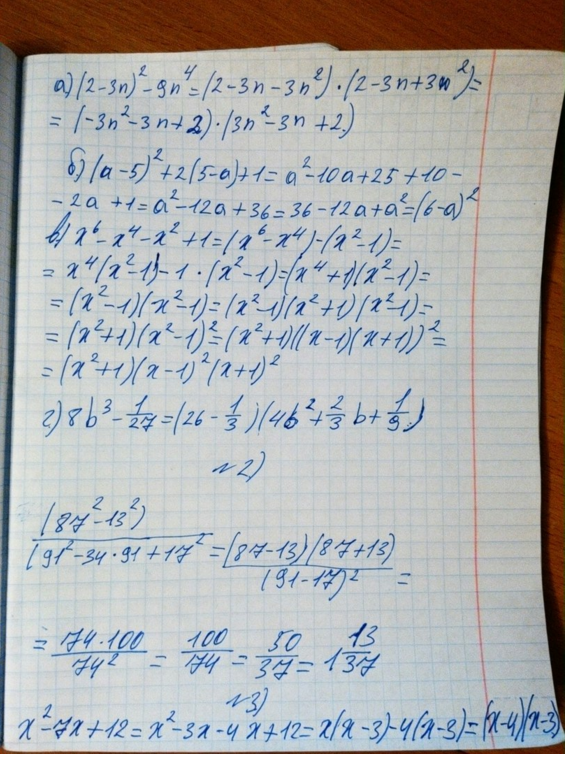 а) (2-3n)² - 9n⁴ = (2-3n-3n²)·(2-3n+3n²)=
= (-3n²-3n+2)·(3n²-3n+2)
б) (a-5)²+2(5-a)+1 = a²-10a+25+10-
-2a+1=a²-12a+36=36-12a+a²=(6-a)²
в) x⁶-x⁴-x²+1=(x⁶-x⁴)-(x²-1)=
= x⁴(x²-1)-1·(x²-1)=(x⁴+1)(x²-1)=
= (x²-1)(x²-1)=(x²-1)(x²+1)(x²-1)=
= (x²+1)(x²-1)²=(x²+1)((x-1)(x+1))²=
= (x²+1)(x-1)²(x+1)²
г) 8b³ - 1/27 = (2b - 1/3)(4b² + 2/3 b + 1/9)
№2)
(87²-13²)/(91²-34·91+17² = (87-13)(87+13)/(91-17)² =
= 74·100/74² = 100/74 = 50/37 = 1 13/37
№3)
x²-7x+12=x²-3x-4x+12=x(x-3)-4(x-3)=(x-4)(x-3)